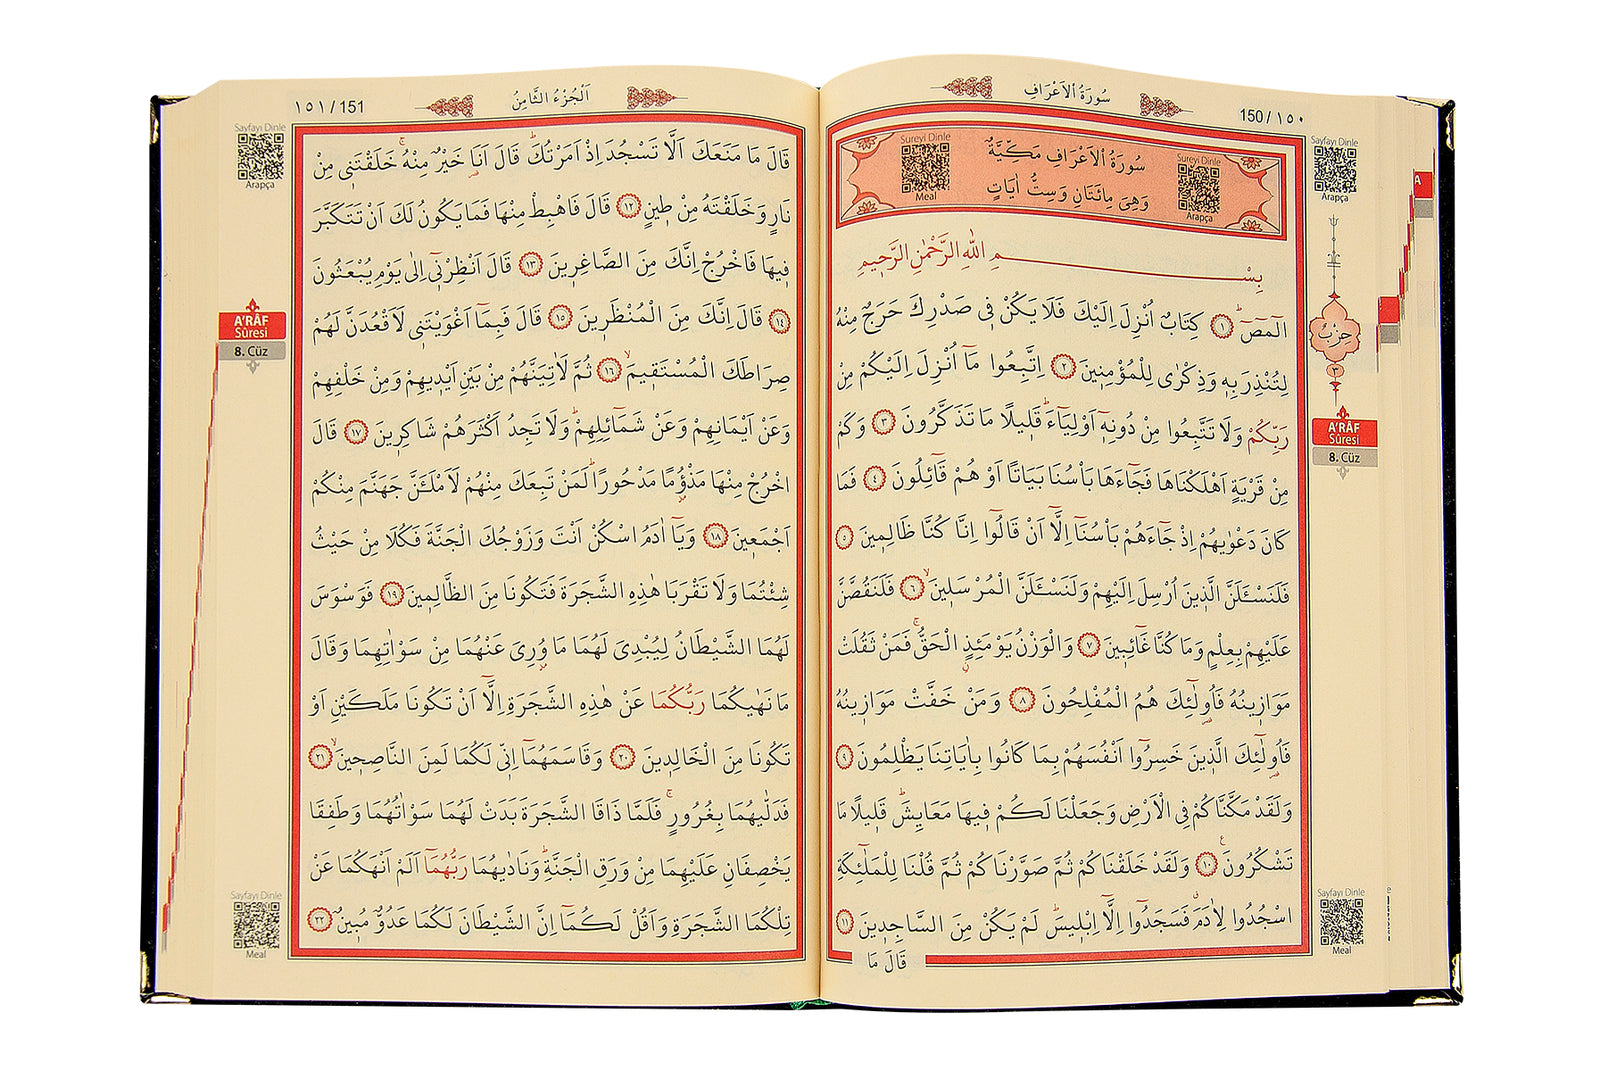 سُورَةُ الْاَعْرَافِ
150 / ١٥٠
Sureyi Dinle
Meal
سُورَةُ الْاَعْرَافِ مَكِّيَّةٌ
وَهِىَ مِائَتَانِ وَسِتُّ اٰيَاتٍ
Sureyi Dinle
Arapça
Sayfayı Dinle
Arapça
بِسْمِ اللّٰهِ الرَّحْمٰنِ الرَّحٖيمِ
الٓمٓصٓۜ ﴿١﴾ كِتَابٌ اُنْزِلَ اِلَيْكَ فَلَا يَكُنْ فٖى صَدْرِكَ حَرَجٌ مِنْهُ
لِتُنْذِرَ بِهٖ وَذِكْرٰى لِلْمُؤْمِنٖينَ ﴿٢﴾ اِتَّبِعُوا مَٓا اُنْزِلَ اِلَيْكُمْ مِنْ
رَبِّكُمْ وَلَا تَتَّبِعُوا مِنْ دُونِهٖٓ اَوْلِيَٓاءَۜ قَلٖيلًا مَا تَذَكَّرُونَ ﴿٣﴾ وَكَمْ
مِنْ قَرْيَةٍ اَهْلَكْنَاهَا فَجَٓاءَهَا بَاْسُنَا بَيَاتًا اَوْ هُمْ قَٓائِلُونَ ﴿٤﴾ فَمَا
كَانَ دَعْوٰيهُمْ اِذْ جَٓاءَهُمْ بَاْسُنَٓا اِلَّٓا اَنْ قَالُٓوا اِنَّا كُنَّا ظَالِمٖينَ ﴿٥﴾
فَلَنَسْـَٔلَنَّ الَّذٖينَ اُرْسِلَ اِلَيْهِمْ وَلَنَسْـَٔلَنَّ الْمُرْسَلٖينَۙ ﴿٦﴾ فَلَنَقُصَّنَّ
عَلَيْهِمْ بِعِلْمٍ وَمَا كُنَّا غَٓائِبٖينَ ﴿٧﴾ وَالْوَزْنُ يَوْمَئِذٍ الْحَقُّۚ فَمَنْ ثَقُلَتْ
مَوَازٖينُهُ فَاُو۬لٰٓئِكَ هُمُ الْمُفْلِحُونَ ﴿٨﴾ وَمَنْ خَفَّتْ مَوَازٖينُهُ
فَاُو۬لٰٓئِكَ الَّذٖينَ خَسِرُٓوا اَنْفُسَهُمْ بِمَا كَانُوا بِاٰيَاتِنَا يَظْلِمُونَ ﴿٩﴾
وَلَقَدْ مَكَّنَّاكُمْ فِى الْاَرْضِ وَجَعَلْنَا لَكُمْ فٖيهَا مَعَايِشَۜ قَلٖيلًا مَا
تَشْكُرُونَ ﴿١٠﴾ وَلَقَدْ خَلَقْنَاكُمْ ثُمَّ صَوَّرْنَاكُمْ ثُمَّ قُلْنَا لِلْمَلٰٓئِكَةِ
اسْجُدُوا لِاٰدَمَۗ فَسَجَدُٓوا اِلَّٓا اِبْلٖيسَۜ لَمْ يَكُنْ مِنَ السَّاجِدٖينَ ﴿١١﴾
قَالَ مَا
حِزْبٌ
٣
A'RÂF
Sûresi
8. Cüz
Sayfayı Dinle
Meal
١٥١ / 151
اَلْجُزْءُ الثَّامِنُ
Sayfayı Dinle
Arapça
قَالَ مَا مَنَعَكَ اَلَّا تَسْجُدَ اِذْ اَمَرْتُكَۜ قَالَ اَنَا۬ خَيْرٌ مِنْهُۚ خَلَقْتَنٖى مِنْ
نَارٍ وَخَلَقْتَهُ مِنْ طٖينٍ ﴿١٢﴾ قَالَ فَاهْبِطْ مِنْهَا فَمَا يَكُونُ لَكَ اَنْ تَتَكَبَّرَ
فٖيهَا فَاخْرُجْ اِنَّكَ مِنَ الصَّاغِرٖينَ ﴿١٣﴾ قَالَ اَنْظِرْنٖٓى اِلٰى يَوْمِ يُبْعَثُونَ
﴿١٤﴾ قَالَ اِنَّكَ مِنَ الْمُنْظَرٖينَ ﴿١٥﴾ قَالَ فَبِمَٓا اَغْوَيْتَنٖى لَاَقْعُدَنَّ لَهُمْ
صِرَاطَكَ الْمُسْتَقٖيمَۙ ﴿١٦﴾ ثُمَّ لَاٰتِيَنَّهُمْ مِنْ بَيْنِ اَيْدٖيهِمْ وَمِنْ خَلْفِهِمْ
وَعَنْ اَيْمَانِهِمْ وَعَنْ شَمَٓائِلِهِمْۜ وَلَا تَجِدُ اَكْثَرَهُمْ شَاكِرٖينَ ﴿١٧﴾ قَالَ
اخْرُجْ مِنْهَا مَذْؤُ۫مًا مَدْحُورًاۜ لَمَنْ تَبِعَكَ مِنْهُمْ لَاَمْلَـَٔنَّ جَهَنَّمَ مِنْكُمْ
اَجْمَعٖينَ ﴿١٨﴾ وَيَٓا اٰدَمُ اسْكُنْ اَنْتَ وَزَوْجُكَ الْجَنَّةَ فَكُلَا مِنْ حَيْثُ
شِئْتُمَا وَلَا تَقْرَبَا هٰذِهِ الشَّجَرَةَ فَتَكُونَا مِنَ الظَّالِمٖينَ ﴿١٩﴾ فَوَسْوَسَ
لَهُمَا الشَّيْطَانُ لِيُبْدِىَ لَهُمَا مَا وُ۫رِىَ عَنْهُمَا مِنْ سَوْاٰتِهِمَا وَقَالَ
مَا نَهٰيكُمَا رَبُّكُمَا عَنْ هٰذِهِ الشَّجَرَةِ اِلَّٓا اَنْ تَكُونَا مَلَكَيْنِ اَوْ
تَكُونَا مِنَ الْخَالِدٖينَ ﴿٢٠﴾ وَقَاسَمَهُمَٓا اِنّٖى لَكُمَا لَمِنَ النَّاصِحٖينَۙ ﴿٢١﴾
فَدَلّٰيهُمَا بِغُرُورٍۚ فَلَمَّا ذَاقَا الشَّجَرَةَ بَدَتْ لَهُمَا سَوْاٰتُهُمَا وَطَفِقَا
يَخْصِفَانِ عَلَيْهِمَا مِنْ وَرَقِ الْجَنَّةِۜ وَنَادٰيهُمَا رَبُّهُمَٓا اَلَمْ اَنْهَكُمَا عَنْ
تِلْكُمَا الشَّجَرَةِ وَاَقُلْ لَكُمَٓا اِنَّ الشَّيْطَانَ لَكُمَا عَدُوٌّ مُبٖينٌ ﴿٢٢﴾
A'RÂF
Sûresi
8. Cüz
Sayfayı Dinle
Meal